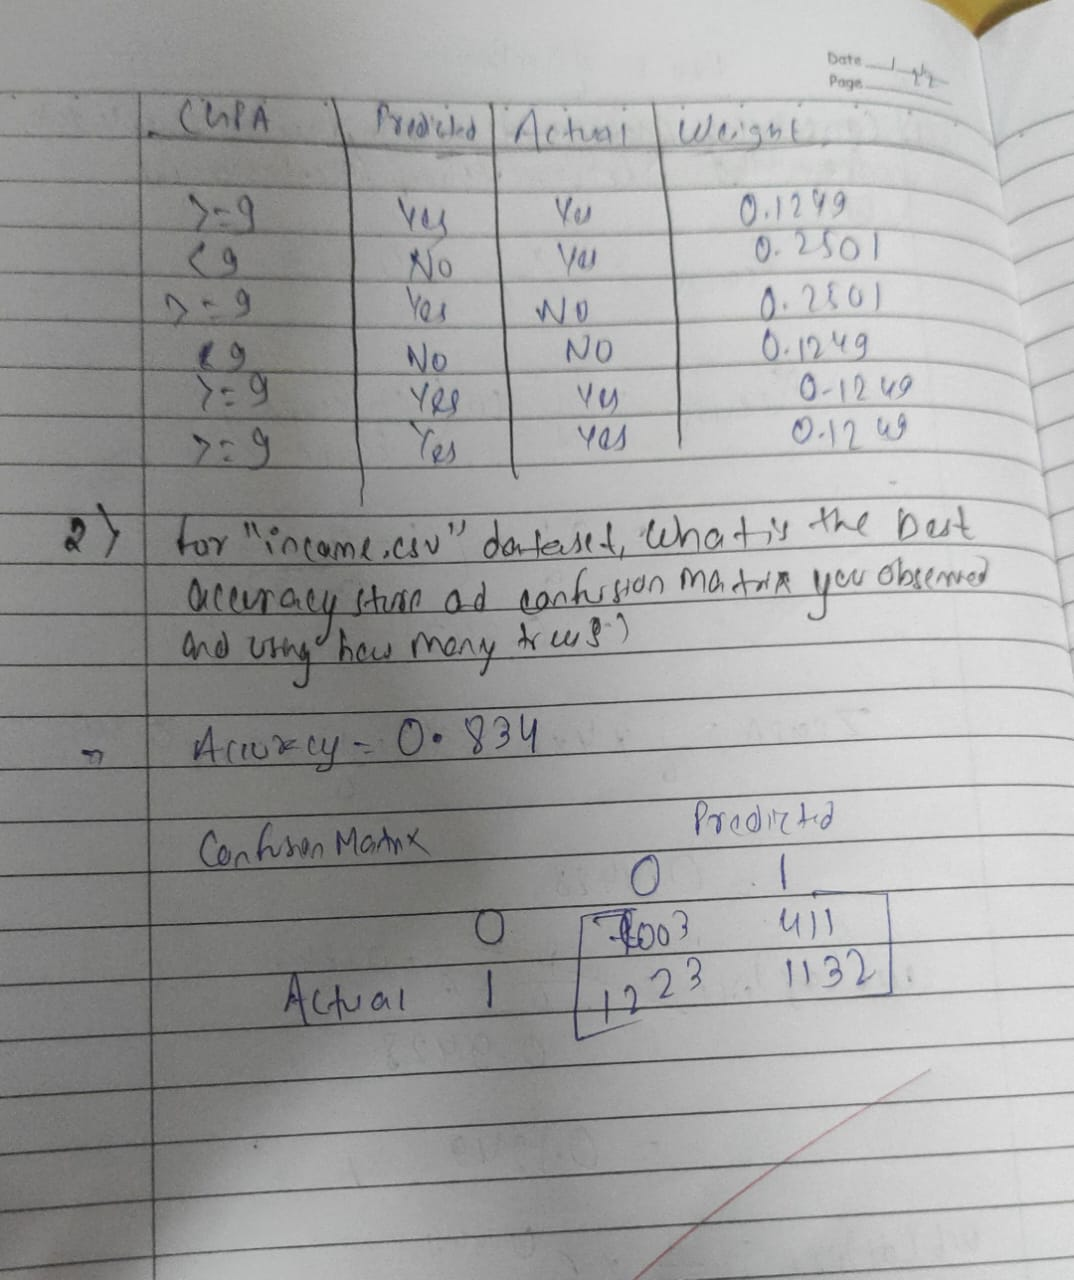 Date
Page
CGPA Predicted Actual Weight
>=9 Yes Yes 0.1249
<9 No Yes 0.2501
>=9 Yes NO 0.2501
<9 No NO 0.1249
>=9 Yes Yes 0.1249
>=9 Yes Yes 0.1249
2) for "income.csv" dataset, What is the best
accuracy ad confusion Matrix you observed
and using how many trees?
Accuracy = 0.834
Predicted
Confusion Matrix
0 1
0 7003 411
Actual 1 1223 1132